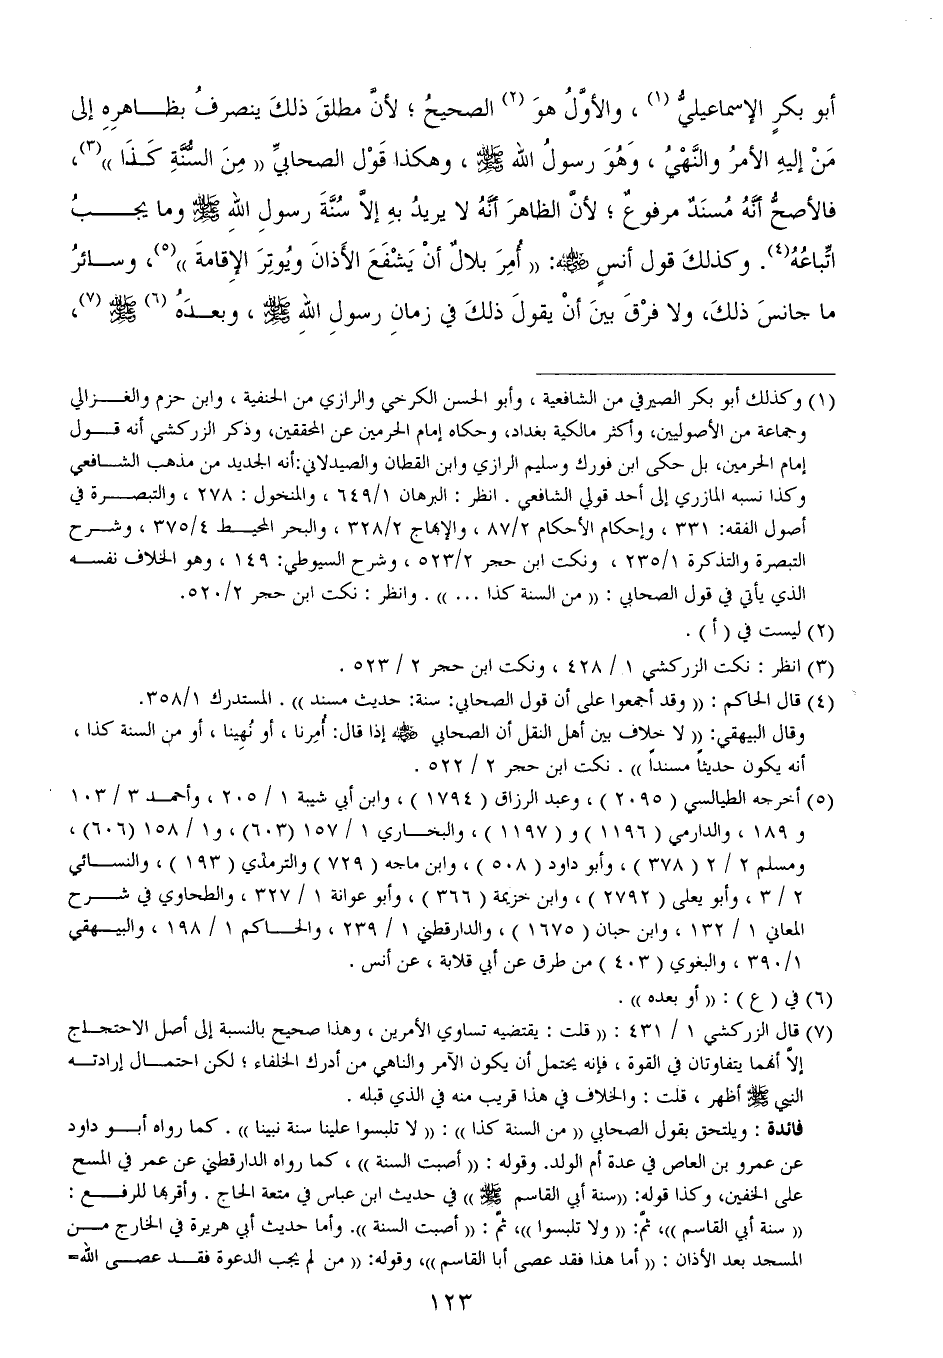 أبو بكرٍ الإسماعيليُّ (١) ، والأوَّلُ هوَ (٢) الصحيحُ ؛ لأنَّ مطلقَ ذلكَ ينصرفُ بظـــاهرِهِ إلى
مَنْ إليهِ الأمرُ والنَّهْيُ ، وَهُوَ رسولُ اللهِ ﷺ ، وهكذا قَوْل الصحابيِّ (( مِنَ السُّنَّةِ كَـذَا ))(٣)،
فالأصحُّ أنَّهُ مُسنَدٌ مرفوعٌ ؛ لأنَّ الظاهرَ أنَّهُ لا يريدُ بهِ إلاَّ سُنَّةَ رسولِ اللهِ ﷺ وما يجـــبُ
اتِّباعُهُ(٤). وكذلكَ قول أنسٍ ﷺ: (( أُمِرَ بلالٌ أنْ يَشْفَعَ الأذانَ ويُوتِرَ الإقامةَ ))(٥)، وسـائرُ
ما جانسَ ذلكَ، ولا فرْقَ بينَ أنْ يقولَ ذلكَ في زمانِ رسولِ اللهِ ﷺ ، وبعـدَهُ (٦) ﷺ (٧)،
(١) وكذلك أبو بكر الصيرفي من الشافعية ، وأبو الحسن الكرخي والرازي من الحنفية ، وابن حزم والغـــزالي
وجماعة من الأصوليين، وأكثر مالكية بغداد، وحكاه إمام الحرمين عن المحققين، وذكر الزركشي أنه قـــول
إمام الحرمين، بل حكى ابن فورك وسليم الرازي وابن القطان والصيدلاني:أنه الجديد من مذهب الشـافعي
وكذا نسبه المازري إلى أحد قولي الشافعي . انظر : البرهان ٦٤٩/١ ، والمنخول : ٢٧٨ ، والتبصـــرة في
أصول الفقه: ٣٣١ ، وإحكام الأحكام ٨٧/٢ ، والإبهاج ٣٢٨/٢ ، والبحر المحيـــط ٣٧٥/٤ ، وشـــرح
التبصرة والتذكرة ٢٣٥/١ ، ونكت ابن حجر ٥٢٣/٢ ، وشرح السيوطي: ١٤٩ ، وهو الخلاف نفســـه
الذي يأتي في قول الصحابي : (( من السنة كذا ... )) . وانظر : نكت ابن حجر ٥٢٠/٢.
(٢) ليست في ( أ ) .
(٣) انظر : نكت الزركشي ١ / ٤٢٨ ، ونكت ابن حجر ٢ / ٥٢٣ .
(٤) قال الحاكم : (( وقد أجمعوا على أن قول الصحابي: سنة: حديث مسند )) . المستدرك ٣٥٨/١.
وقال البيهقي: (( لا خلاف بين أهل النقل أن الصحابي ﷺ إذا قال: أُمِرنا ، أو نُهِينا ، أو من السنة كذا ،
أنه يكون حديثاً مسنداً )) . نكت ابن حجر ٢ / ٥٢٢ .
(٥) أخرجه الطيالسي ( ٢٠٩٥ ) ، وعبد الرزاق ( ١٧٩٤ ) ، وابن أبي شيبة ١ / ٢٠٥ ، وأحمـد ٣ / ١٠٣
و ١٨٩ ، والدارمي ( ١١٩٦ ) و ( ١١٩٧ ) ، والبخـاري ١ / ١٥٧ (٦٠٣) ، و١ / ١٥٨ (٦٠٦) ،
ومسلم ٢ / ٢ ( ٣٧٨ ) ، وأبو داود ( ٥٠٨ ) ، وابن ماجه ( ٧٢٩ ) والترمذي ( ١٩٣ ) ، والنســـائي
٢ / ٣ ، وأبو يعلى ( ٢٧٩٢ ) ، وابن خزيمة ( ٣٦٦ ) ، وأبو عوانة ١ / ٣٢٧ ، والطحاوي في شـــرح
المعاني ١ / ١٣٢ ، وابن حبان ( ١٦٧٥ ) ، والدارقطني ١ / ٢٣٩ ، والحـــاكم ١ / ١٩٨ ، والبيـــهقي
٣٩٠/١ ، والبغوي ( ٤٠٣ ) من طرق عن أبي قلابة ، عن أنس .
(٦) في ( ع ) : (( أو بعده )) .
(٧) قال الزركشي ١ / ٤٣١ : (( قلت : يقتضيه تساوي الأمرين ، وهذا صحيح بالنسبة إلى أصل الاحتجـاج
إلاَّ أنهما يتفاوتان في القوة ، فإنه يحتمل أن يكون الآمر والناهي من أدرك الخلفاء ؛ لكن احتمـــال إرادتـه
النبي ﷺ أظهر ، قلت : والخلاف في هذا قريب منه في الذي قبله .
فائدة : ويلتحق بقول الصحابي (( من السنة كذا )) : (( لا تلبسوا علينا سنة نبينا )) . كما رواه أبـــو داود
عن عمرو بن العاص في عدة أم الولد. وقوله : (( أصبت السنة )) ، كما رواه الدارقطني عن عمر في المسح
على الخفين، وكذا قوله: ((سنة أبي القاسم ﷺ )) في حديث ابن عباس في متعة الحاج . وأقربها للرفـــع :
(( سنة أبي القاسم ))، ثمَّ: (( ولا تلبسوا ))، ثمَّ : (( أصبت السنة )). وأما حديث أبي هريرة في الخارج مـــن
المسجد بعد الأذان : (( أما هذا فقد عصى أبا القاسم ))، وقوله: (( من لم يجب الدعوة فقـــد عصـــى الله=
١٢٣